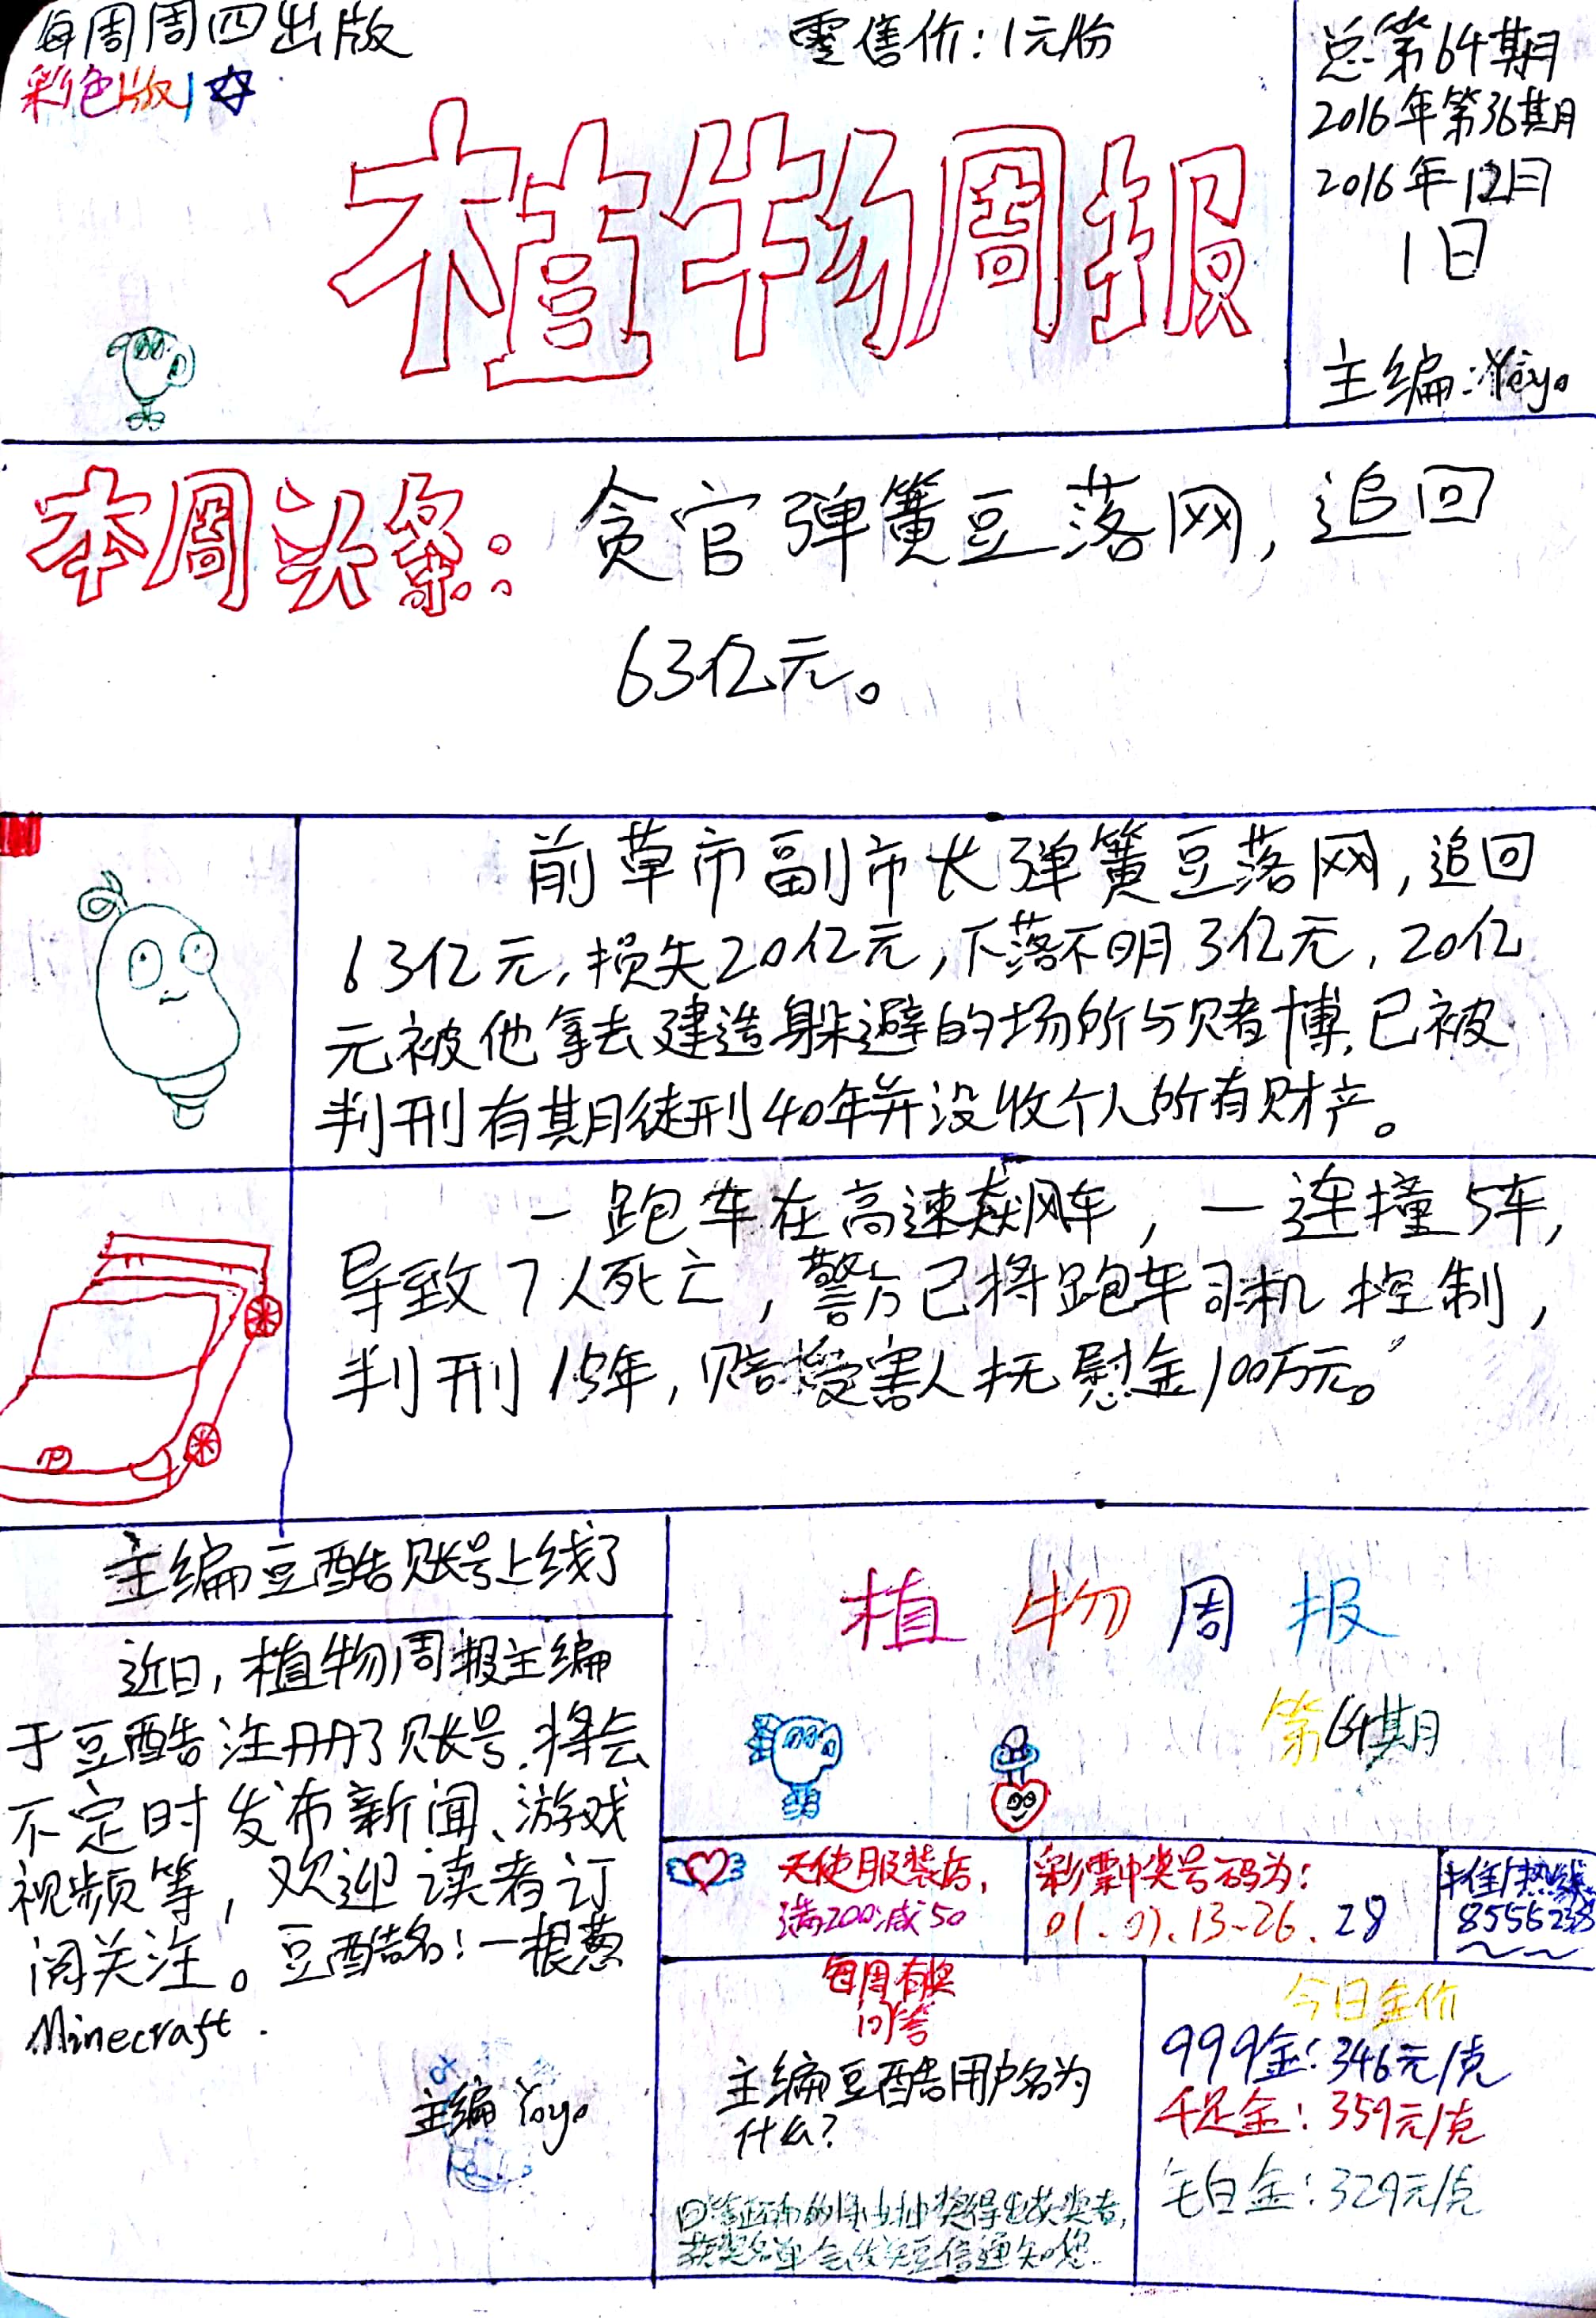 每周周四出版
彩色版
零售价:1元/份
总第64期
2016年第36期
2016年12月
1日
主编:Yoyo
植物周报
本周头条:
贪官弹簧豆落网,追回
63亿元。
前草市副市长弹簧豆落网,追回
63亿元,损失20亿元,下落不明3亿元,20亿
元被他拿去建造躲避的场所与赌博,已被
判刑有期徒刑40年并没收个人所有财产。
一跑车在高速飙车,一连撞5车,
导致7人死亡,警方已将跑车司机控制,
判刑15年,赔受害人抚慰金100万元。
主编豆酷账号上线了
近日,植物周报主编
于豆酷注册了账号,将会
不定时发布新闻、游戏
视频等,欢迎读者订
阅关注。豆酷名:一根葱
Minecraft.
主编Yoyo
植物周报
第64期
天使服装店,
满200减50
彩票中奖号码为:
01.07.13-26.28
热线
每周有奖
问答
主编豆酷用户名为
什么?
回答正确的将抽奖得出获奖者,
获奖名单会发短信通知您.
今日金价
999金:346元/克
千足金:359元/克
白金:329元/克